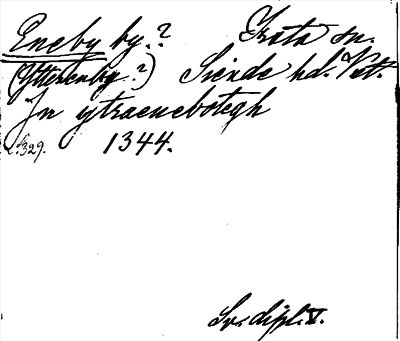 Eneby by.? Irsta sn.
(Ytterenby?) Siende hd. Vstm.
Jn ytraenebotegh
s. 329. 1344.
Sv. dipl. V.